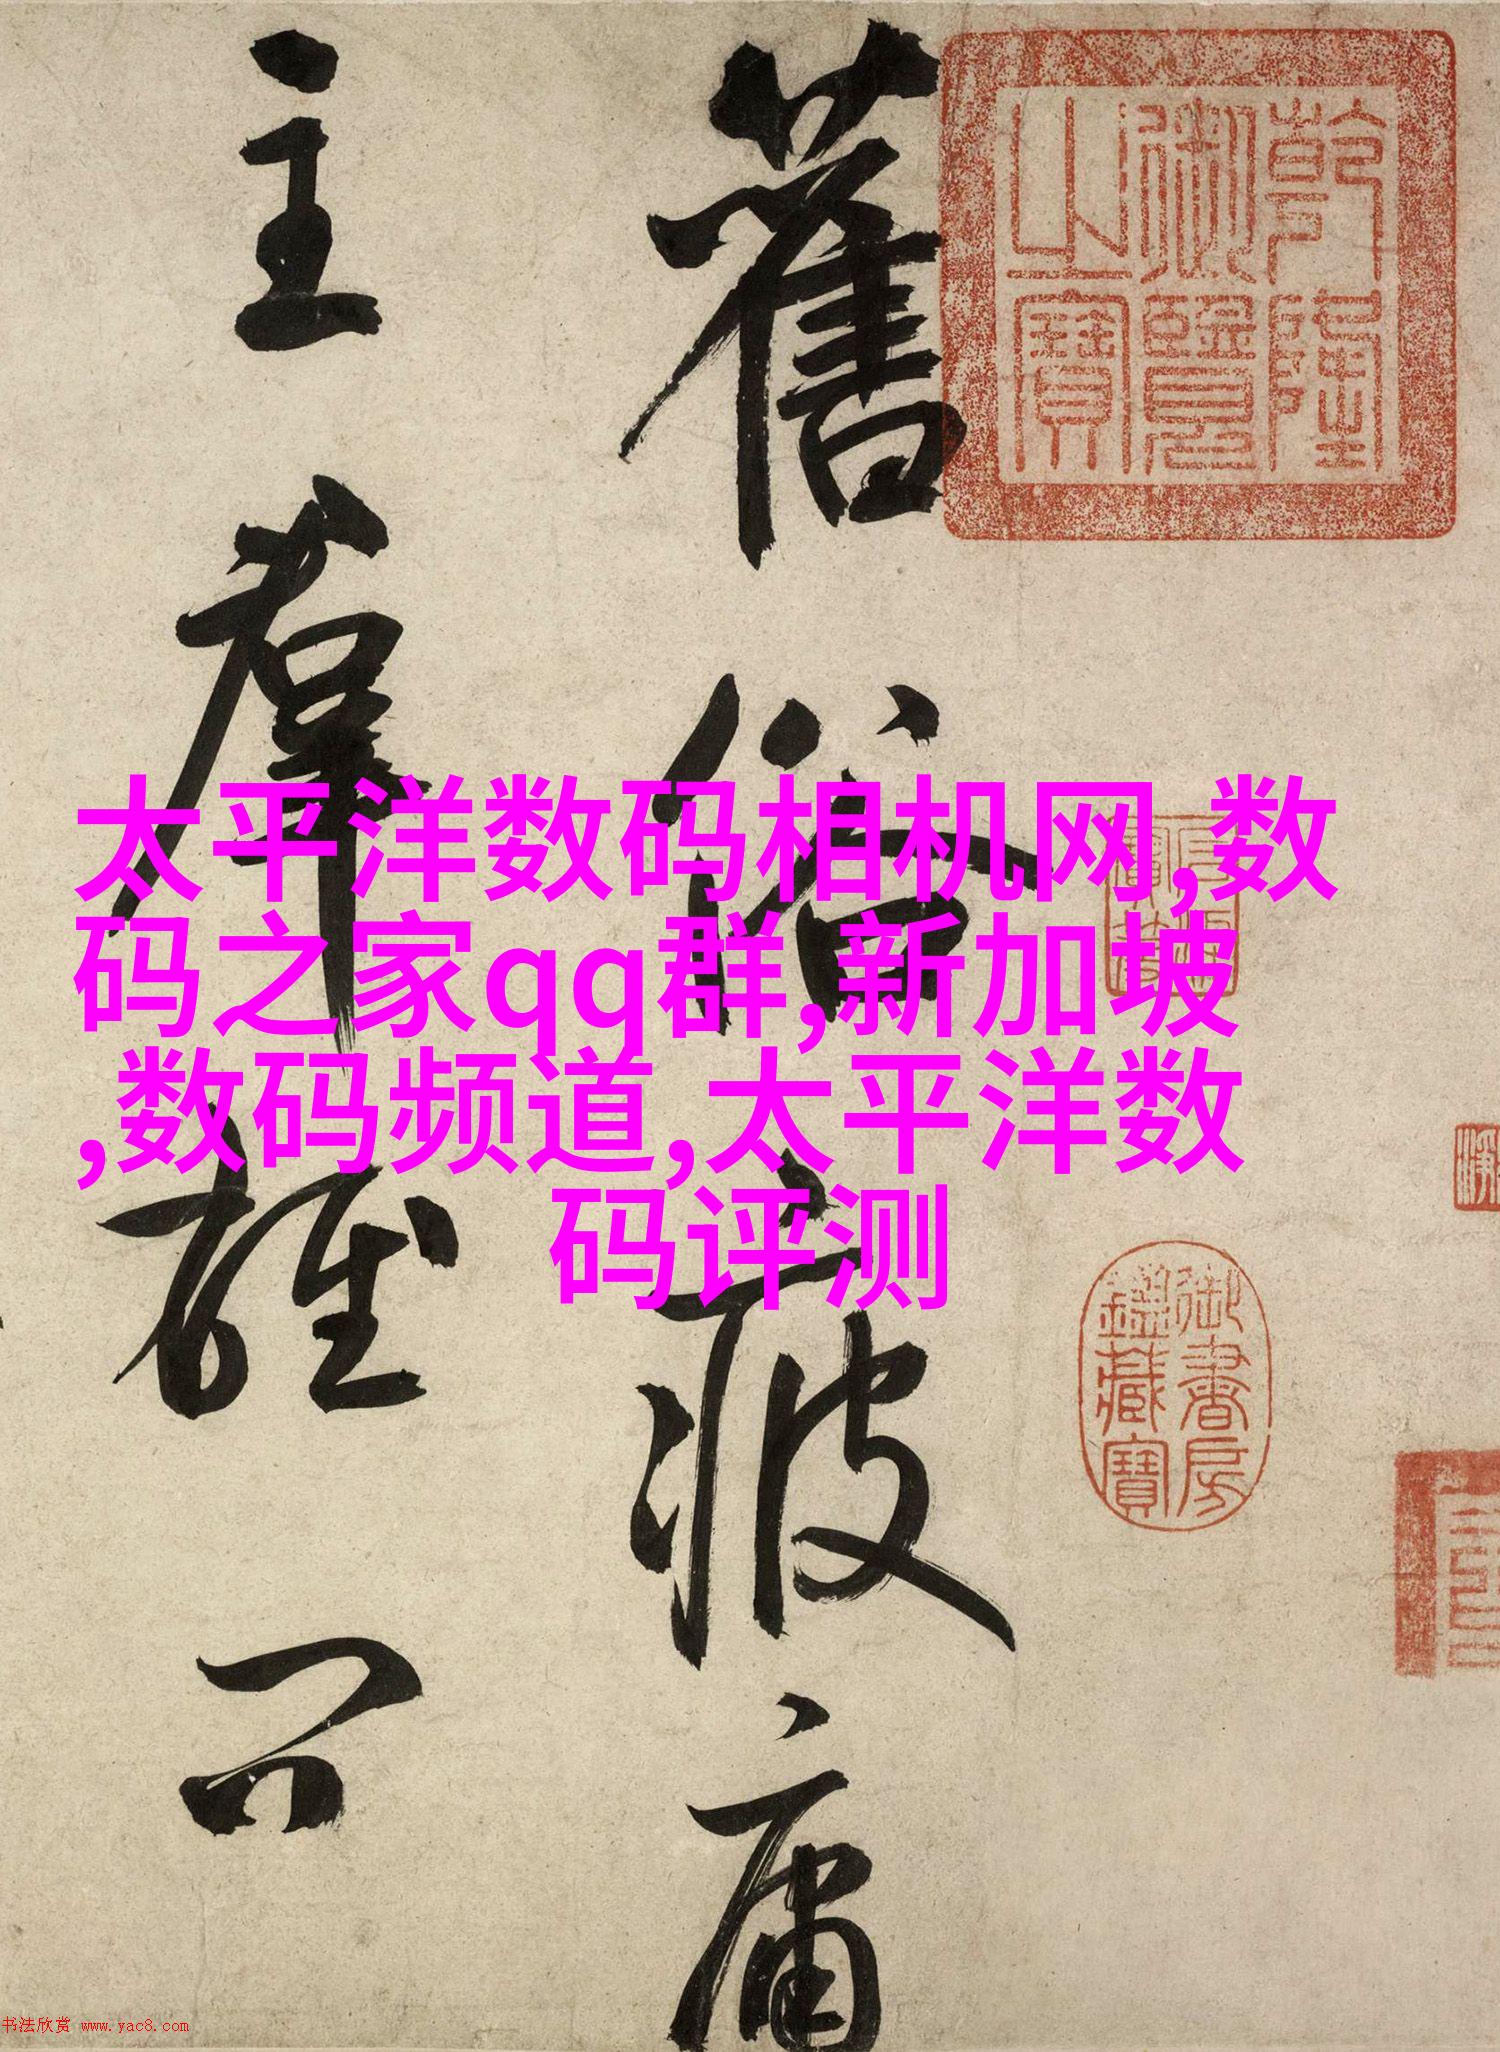 太平洋数码相机网,数
码之家qq群,新加坡
,数码频道,太平洋数
码评测
舊俗疲庸
主羣雄問
乾隆
御覽
之寶
御書房
鑑藏寶
书法欣赏 www.yac8.com